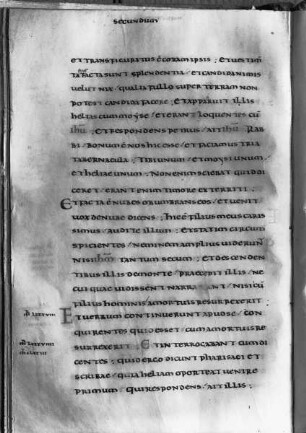 SECUNDUM
ET TRANSFIGURATUS E CORAM IPSIS ; ET UESTIM
TA FACTA SUNT SPLENDENTIA ; ET CANDIDA NIMIS
UELUT NIX ; QUALIA FULLO SUPER TERRAM NON
POTEST CANDIDA FACERE ; ET APPARUIT ILLIS
HELIAS CUM MOYSE ; ET ERANT LOQUENTES CU
IHU ; ET RESPONDENS PETRUS ; AIT IHU RAB
BI BONUM E NOS HIC ESSE ; ET FACIAMUS TRIA
TABERNACULA TIBI UNUM ; ET MOYSI UNUM
ET HELIAE UNUM NON ENIM SCIEBAT QUID DI
CERET ; ERANT ENIM TIMORE EXTERRITI
ET FACTA E NUBES OBUMBRANS EOS ; ET UENIT
UOX DE NUBE DICENS ; HIC E FILIUS MEUS CARIS
SIMUS ; AUDITE ILLUM ; ET STATIM CIRCUM
SPICIENTES ; NEMINEM AMPLIUS UIDERUN
NISI IHM TANTUM SECUM ; ET DESCENDEN
TIBUS ILLIS DE MONTE ; PRAECEPIT ILLIS ; NE
CUI QUAE UIDISSENT NARRARENT ; NISI CU
FILIUS HOMINIS A MORTUIS RESURREXERIT
ET UERBUM CONTINUERUNT APUD SE ; CON
QUIRENTES QUID ESSET ; CUM A MORTUIS RE
SURREXERIT ; ET INTERROGABANT EUM DI
CENTES ; QUID ERGO DICUNT PHARISAEI ET
SCRIBAE ; QUIA HELIAM OPORTEAT UENIRE
PRIMUM ; QUI RESPONDENS ; AIT ILLIS ;